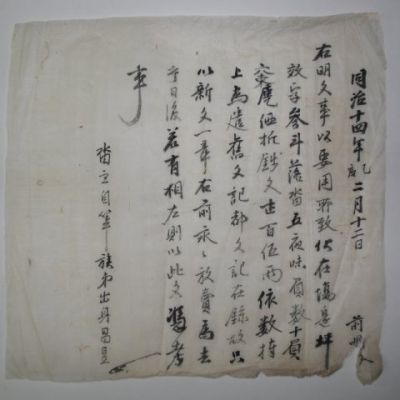 同治十四年乙亥二月十二日 前明文
右明文事以要用所致伏在坪
效字參斗落沓五夜味負數十員
庫價折錢文壹百伍兩依數捧
上爲遣舊文記都文記在錄故只
以新文一章右前永永放賣爲去
乎日後若有相左則以此文憑考
事
沓主自筆族弟出身昌